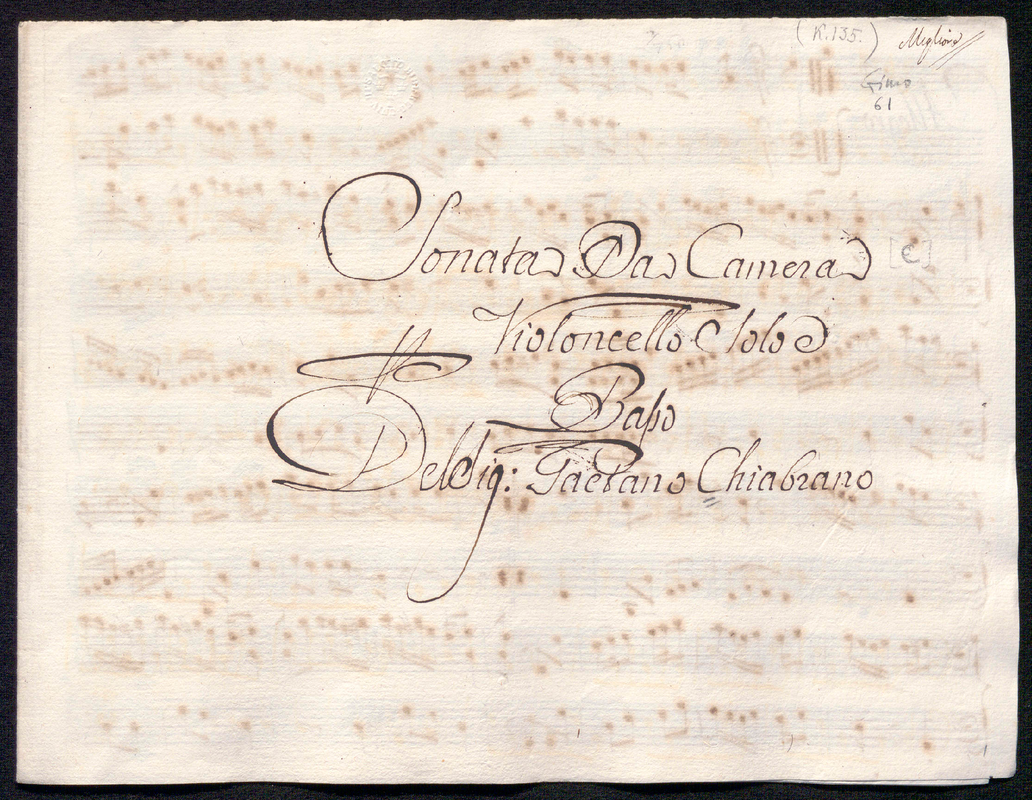 (K.135.) Migliore
Gimo
61
Sonata Da Camera
[C]
Violoncello Solo
Baſso
Del Sig: Gaetano Chiabrano